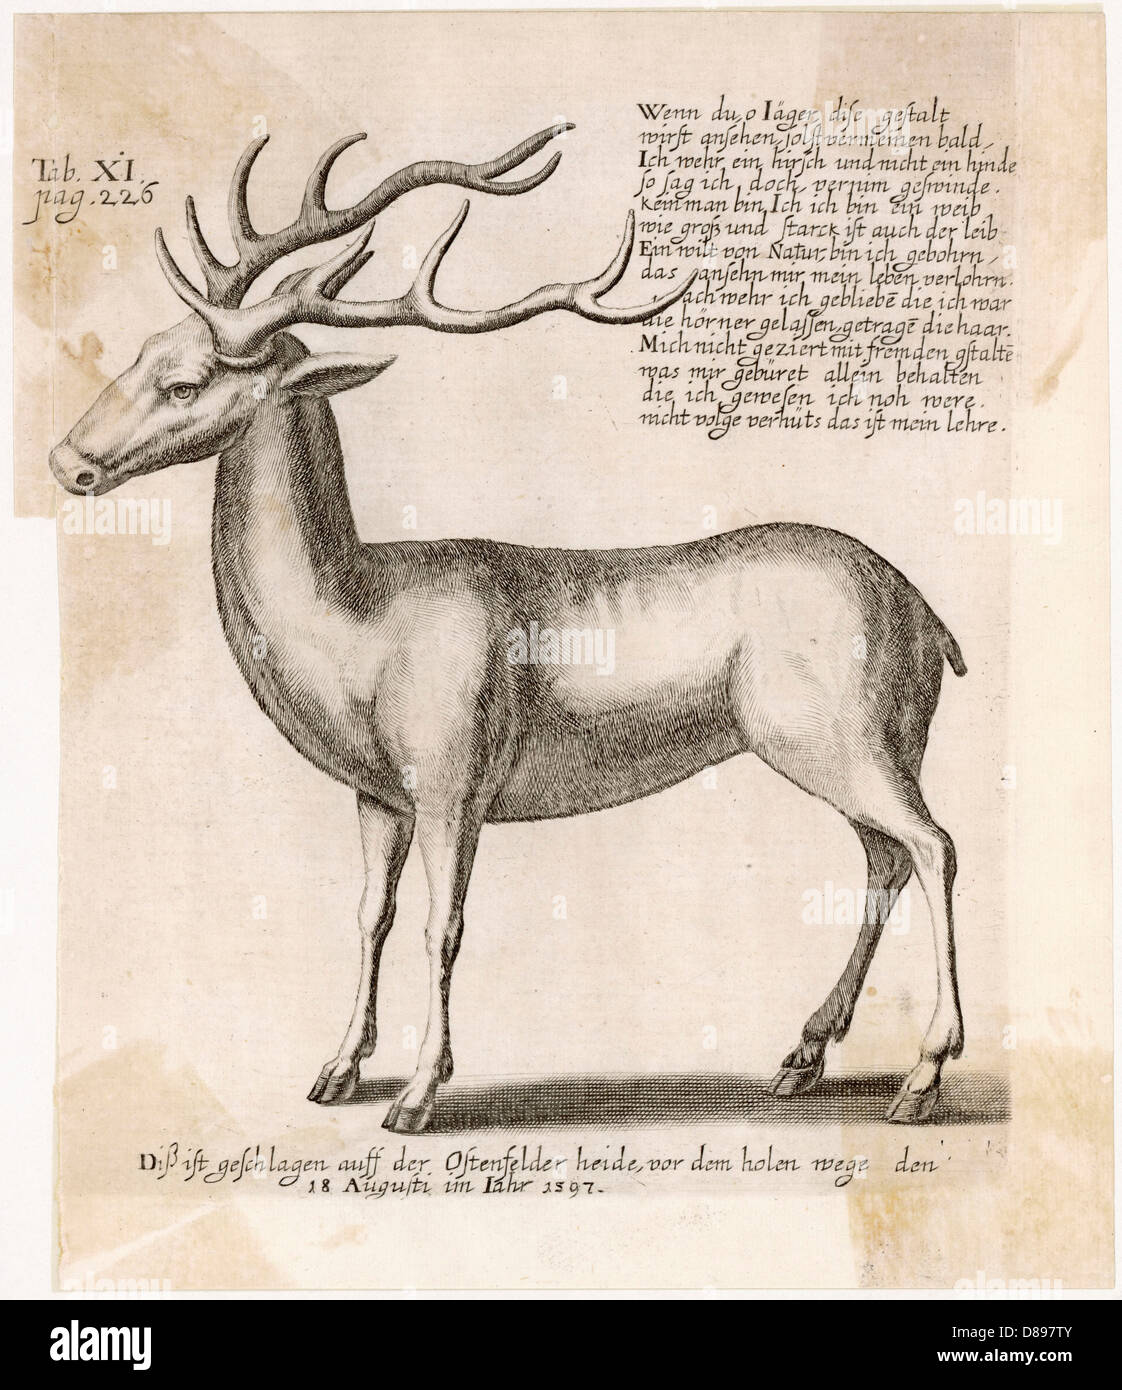 Tab. XI.
pag. 226
Wenn du, o Jäger dise gestalt
wirst ansehen, solst vermeinen bald,
Ich wehr ein hirsch und nicht ein hinde
so sag ich doch, vernim geswinde.
kein man bin Ich ich bin ein weib
wie groß und starck ist auch der leib
Ein wilt von Natur, bin ich gebohrn,
das ansehn mir mein leben verlohrn.
ach wehr ich gebliebē die ich war
die hörner gelassen, getragē die haar.
Mich nicht geziert mit fremden gstaltē
was mir gebüret allein behalten
die ich gewesen ich noh were.
nicht volge verhüts das ist mein lehre.
Diß ist geschlagen auff der Ostenfelder heide, vor dem holen wege den
18 Augusti im Iahr 1597.
alamy
Image ID: D897TY
www.alamy.com